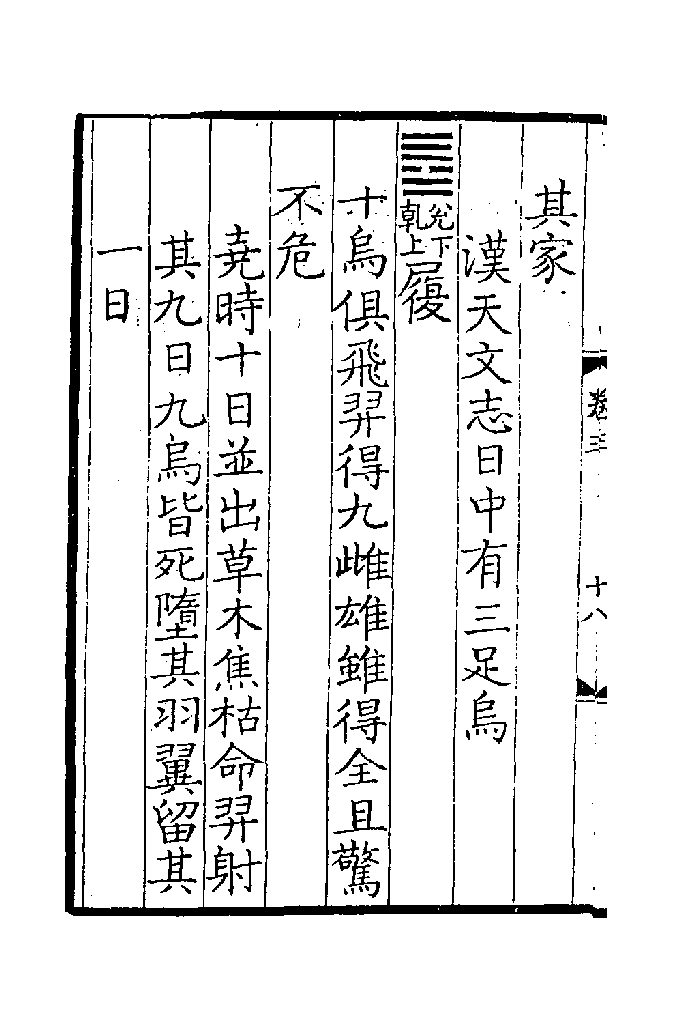 卷三
十八
其家
漢天文志日中有三足烏
䷉兌下乹上履
十烏俱飛羿得九雌雄雖得全且驚
不危
堯時十日並出草木焦枯命羿射
其九日九烏皆死墮其羽翼留其
一日